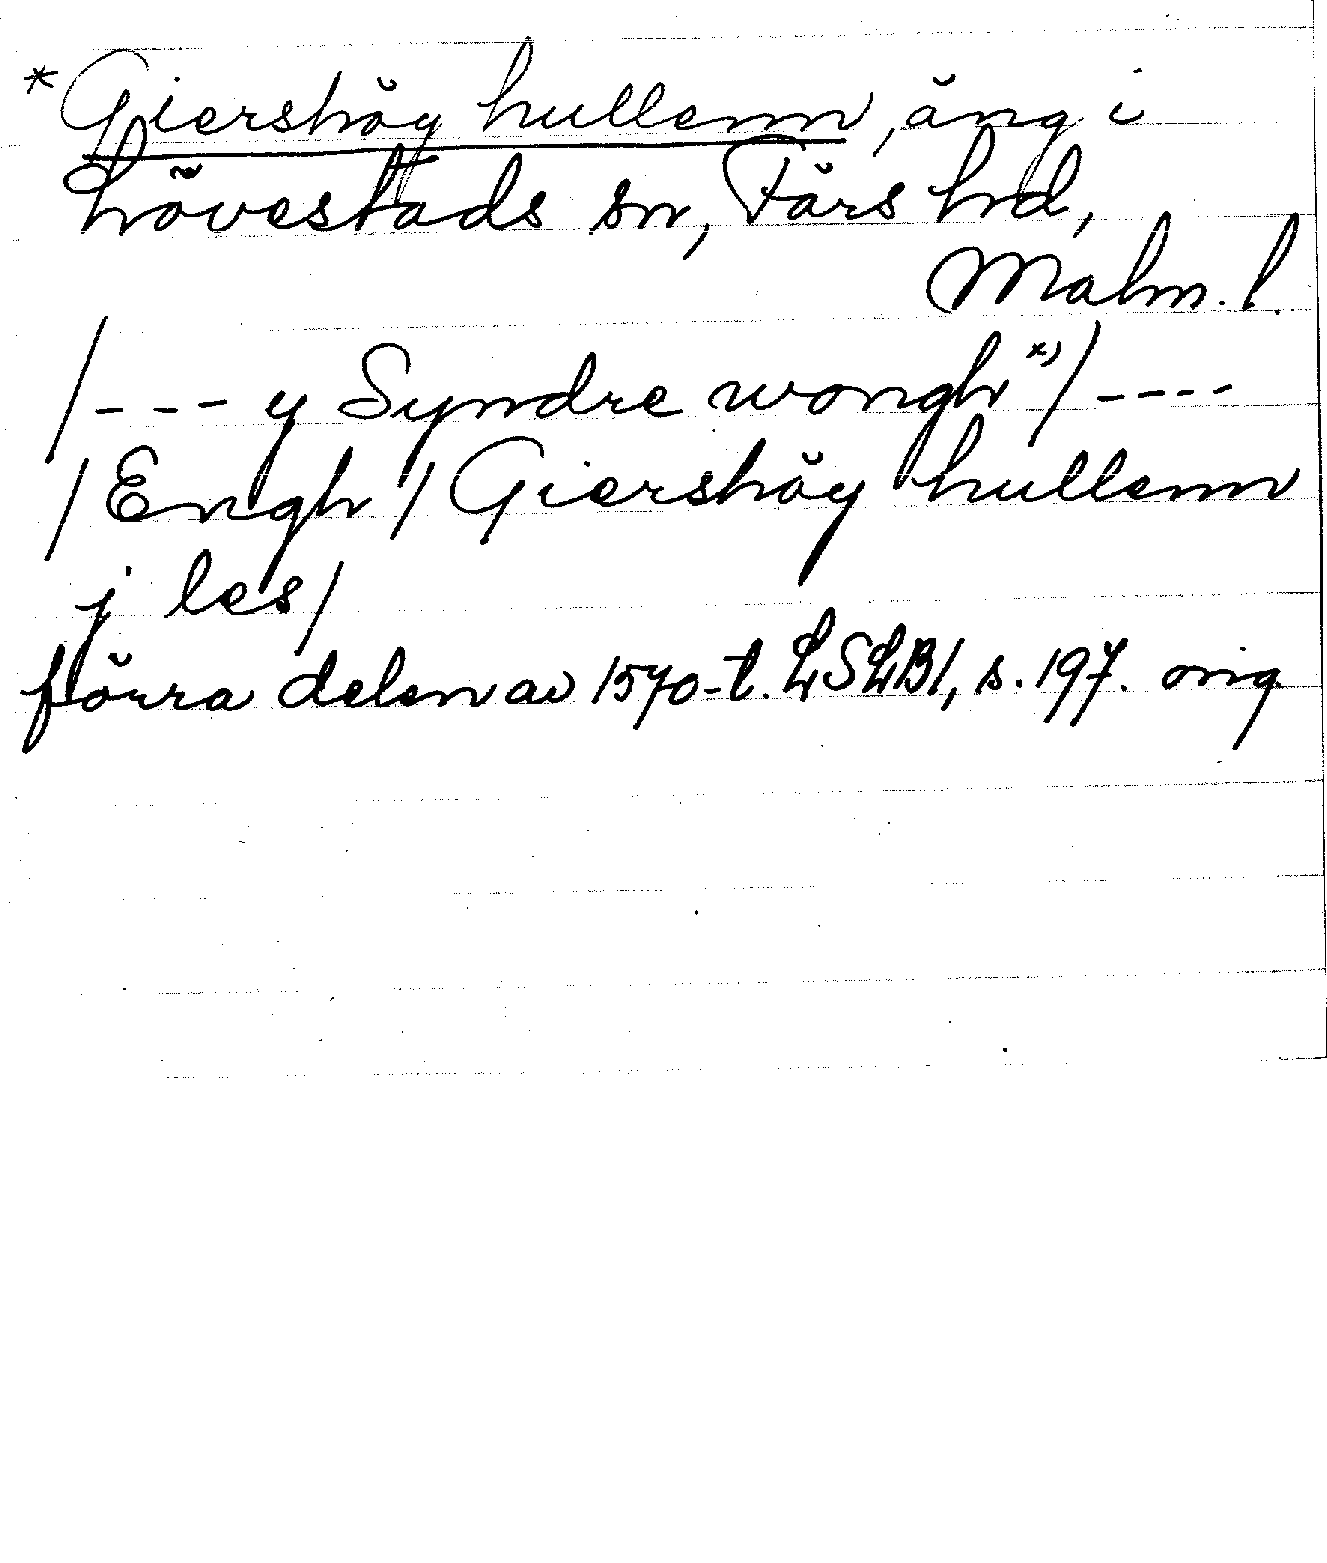 *Giershöy hullenn, äng i
Lövestads sn, Färs hd,
Malm. l.
/--- y Syndre wongh *)/----
/Engh/ Giershöy hullenn
j les/
förra delen av 1570-t. LSLB1, s. 197. orig